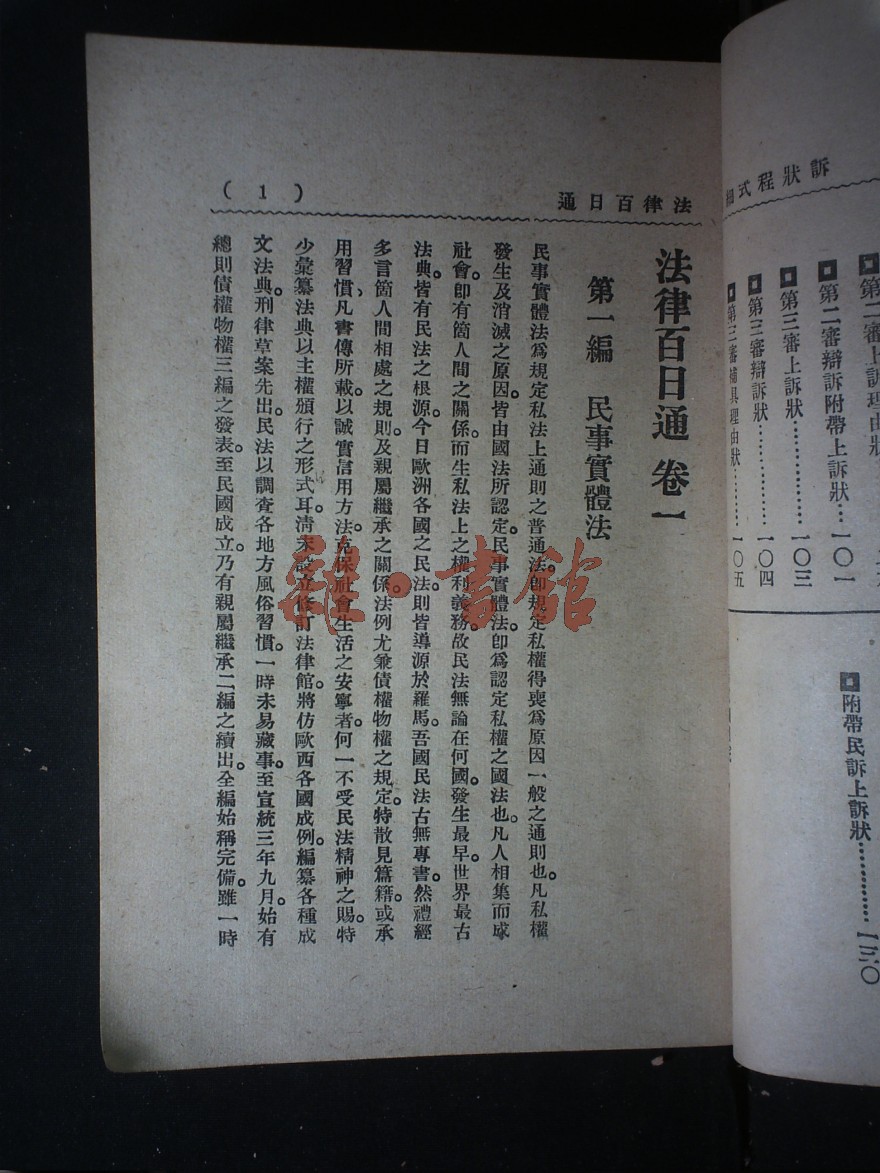 訴狀程式
第二審上訴理由狀
第二審辯訴附帶上訴狀…一〇一
第三審上訴狀…………一〇三
第三審辯訴狀…………一〇四
第三審補具理由狀………一〇五
附帶民訴上訴狀……………一三〇
法律百日通
( 1 )
法律百日通 卷一
第一編 民事實體法
民事實體法爲規定私法上通則之普通法。卽規定私權得喪爲原因一般之通則也。凡私權
發生及消滅之原因。皆由國法所認定。民事實體法。卽爲認定私權之國法也。凡人相集而成
社會。卽有箇人間之關係。而生私法上之權利義務。故民法無論在何國。發生最早。世界最古
法典。皆有民法之根源。今日歐洲各國之民法。則皆導源於羅馬。吾國民法古無專書。然禮經
多言箇人間相處之規則。及親屬繼承之關係。法例尤兼債權物權之規定。特散見篇籍。或承
用習慣。凡書傳所載。以誠實信用方法。克保社會生活之安寧者。何一不受民法精神之賜。特
少彙纂法典以主權頒行之形式耳。淸末設立修訂法律館。將仿歐西各國成例。編纂各種成
文法典。刑律草案先出。民法以調查各地方風俗習慣。一時未易蕆事。至宣統三年九月。始有
總則債權物權三編之發表。至民國成立。乃有親屬繼承二編之續出。全編始稱完備。雖一時
雜·書館